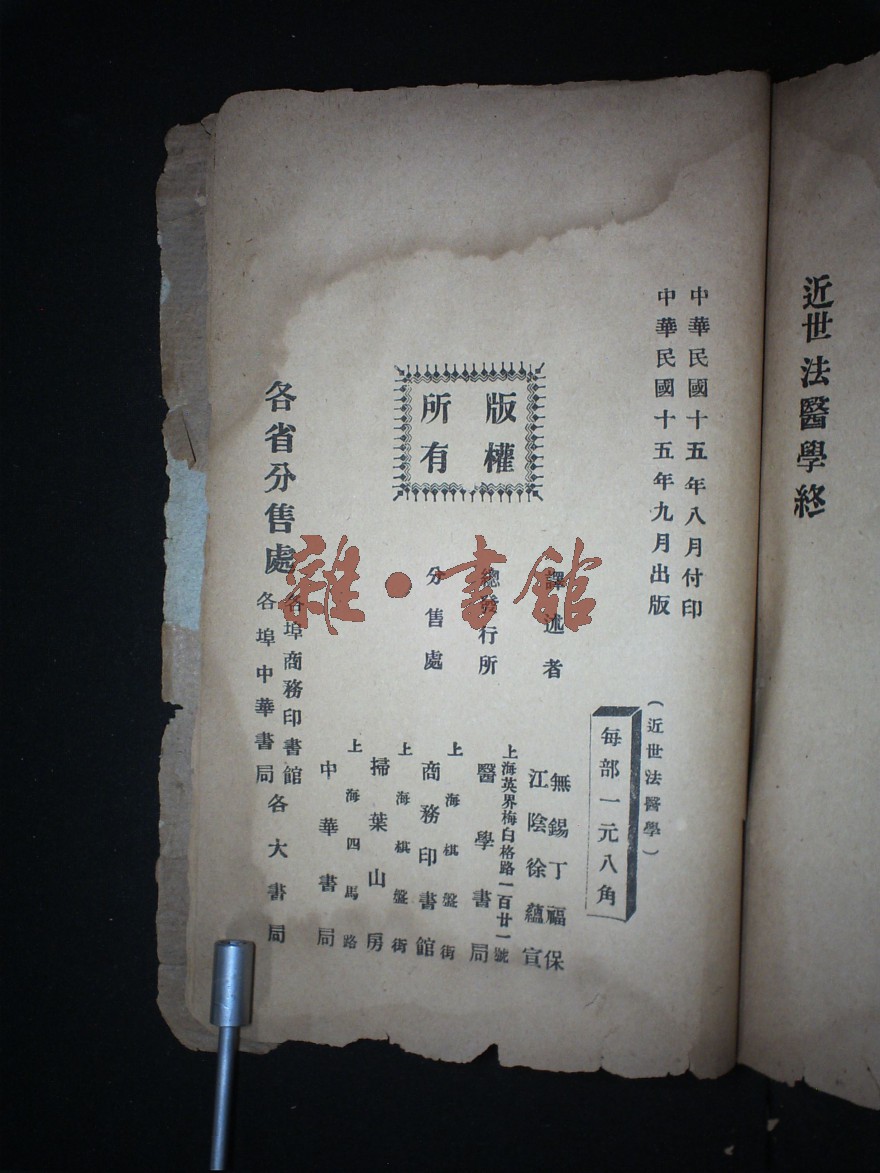 近世法醫學終
中華民國十五年八月付印
中華民國十五年九月出版
(近世法醫學)
每部一元八角
版權
所有
譯述者
無錫丁福保
江陰徐蘊宣
總發行所
上海英界梅白格路一百廿一號
醫學書局
分售處
上海棋盤街
商務印書館
上海棋盤街
掃葉山房
上海四馬路
中華書局
各省分售處
各埠商務印書館
各埠中華書局
各大書局
雜·書館